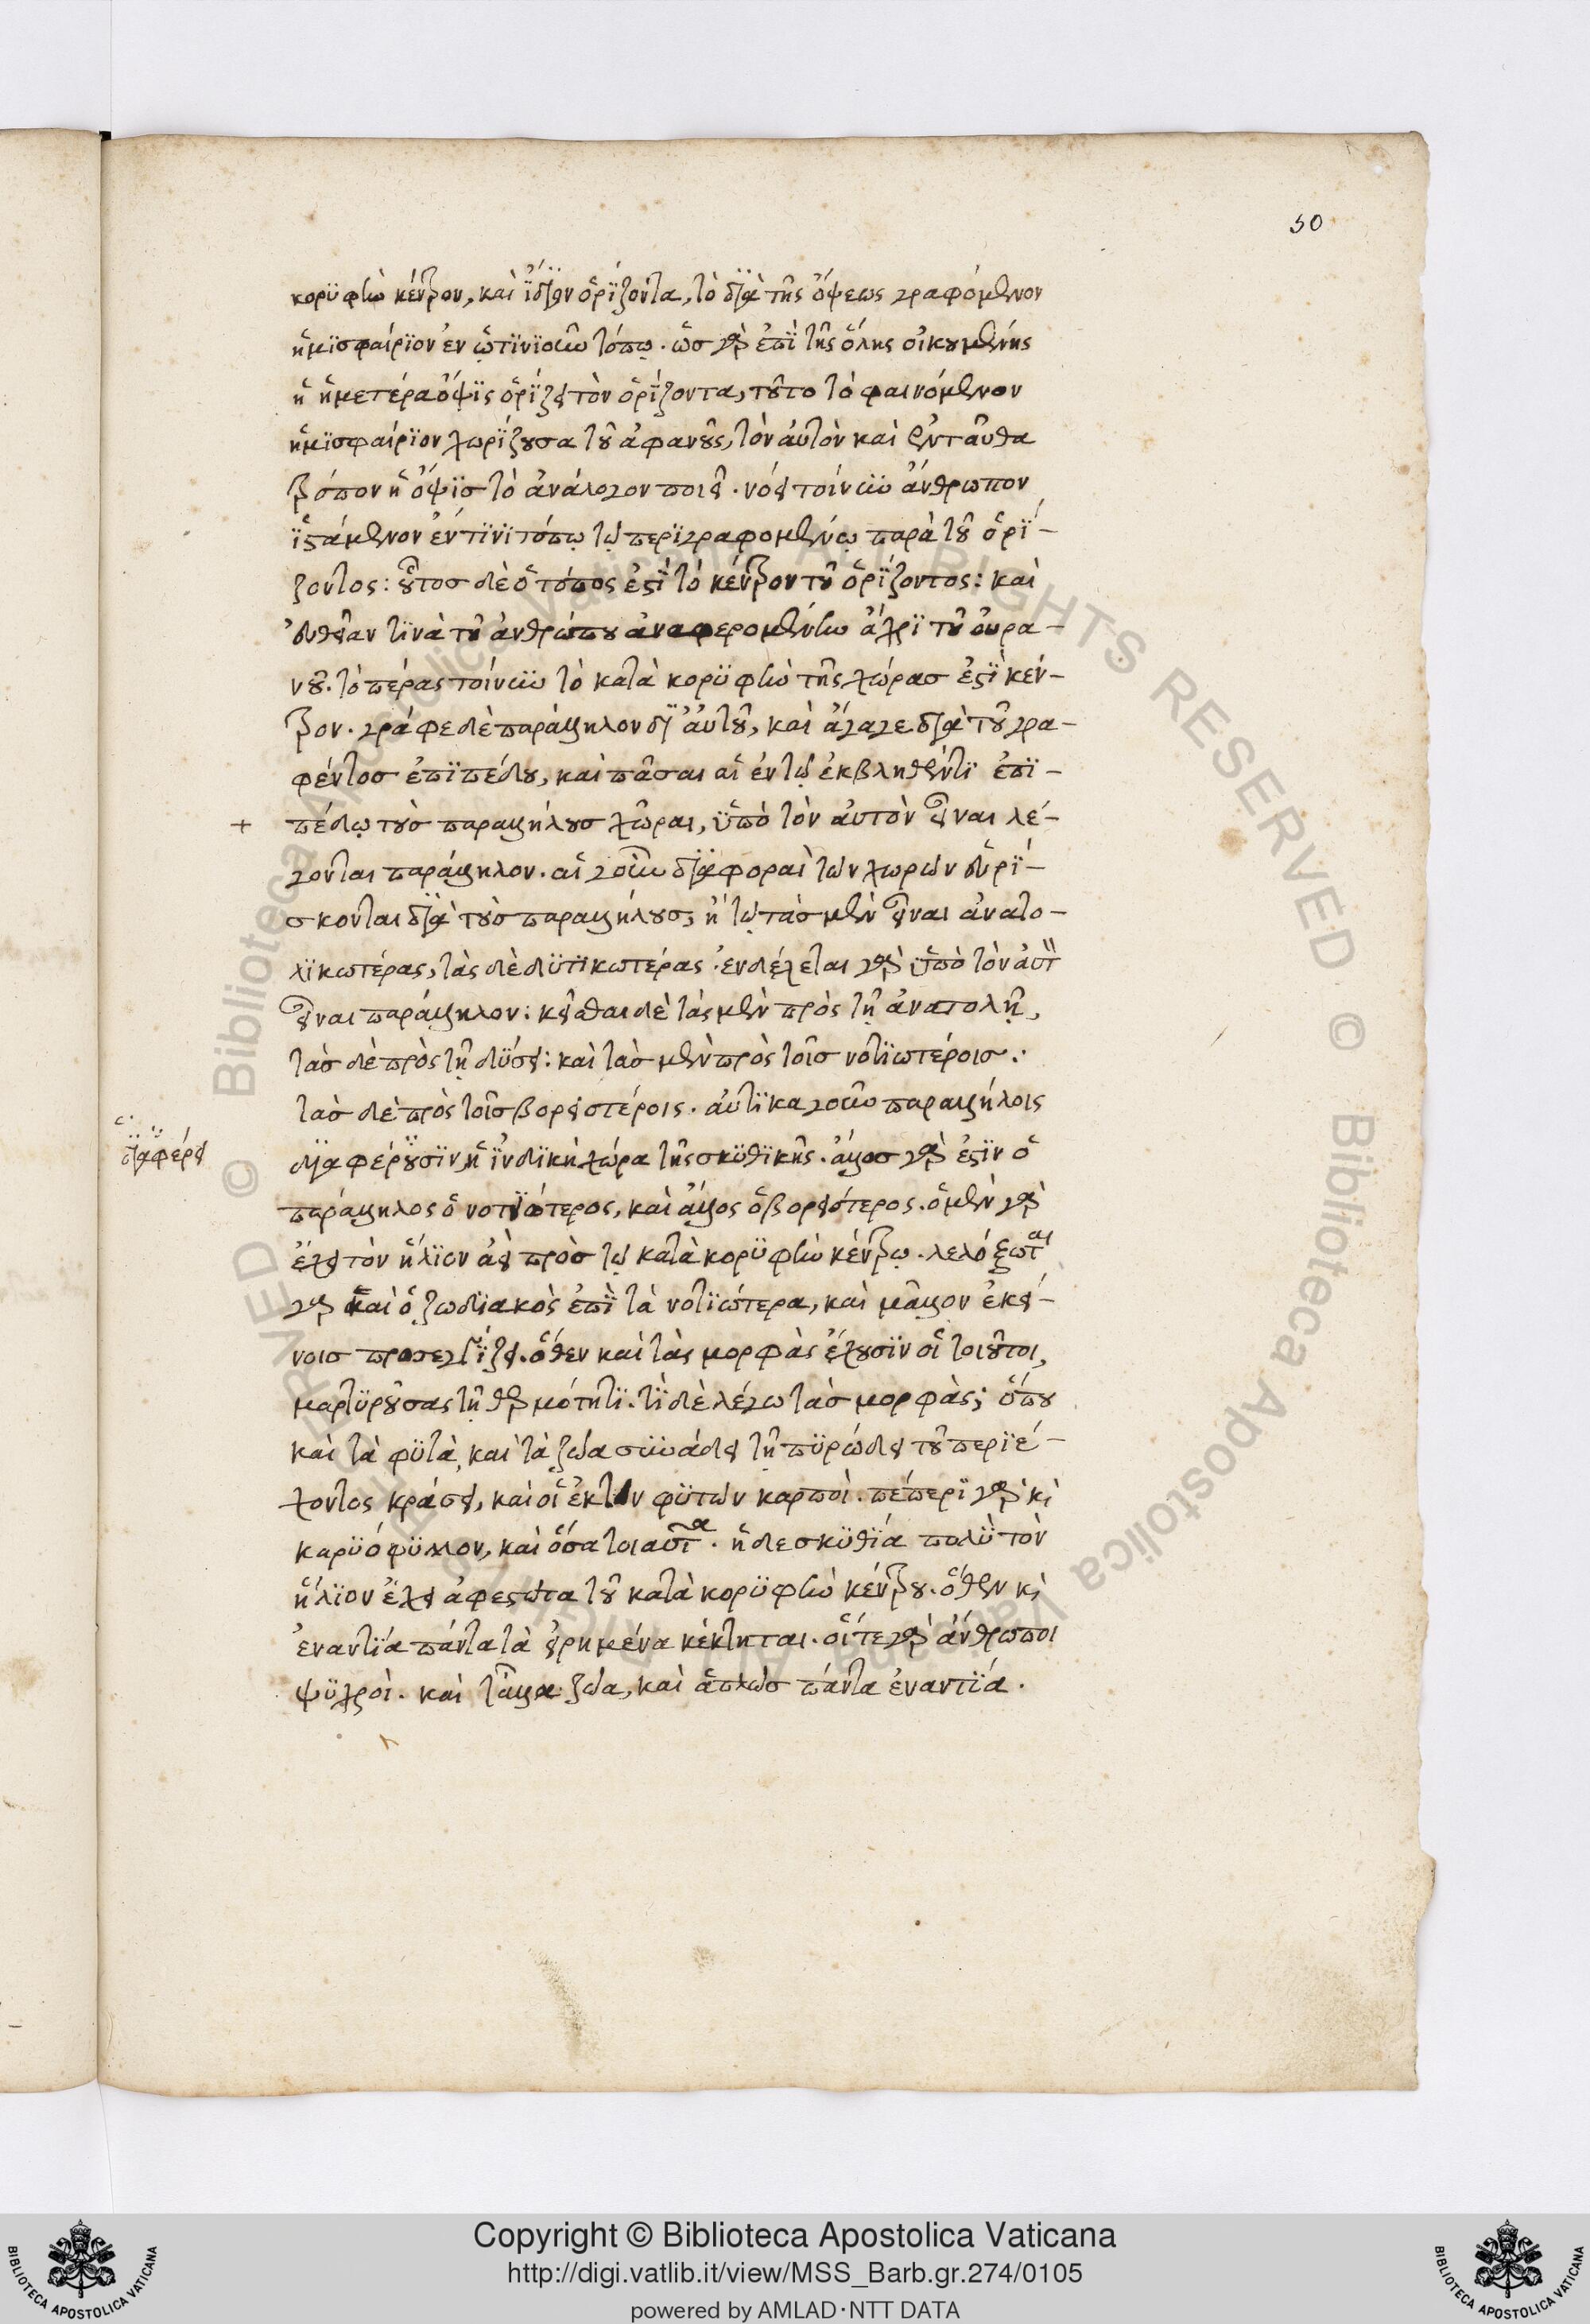 50
κορϋφὴν κέντρον, καὶ ἴδϊον ὁρΐζοντα, τὸ δϊὰ τῆς ὄψεως γραφόμενον
ἡμϊσφαίρϊον ἐν ᾧτϊνϊοῦν τόπῳ. ὡσ γὰρ ἐπῒ τῆς ὅλης οἰκουμένης
ἡ ἡμετέρα ὄψϊς ὁρΐζει τὸν ὁρΐζοντα, τοῦτο τὸ φαινόμενον
ἡμϊσφαίρϊον χωρΐζουσα τοῦ ἀφανοῦς, τὸν ἀυτὸν καὶ ἐνταῦθα
τρόπον ἡ ὄψϊσ τὸ ἀνάλογον ποιεῖ. νόει τοίνυν ἄνθρωπον
ϊστάμενον ἐν τϊνϊ τόπῳ τῷ περϊγραφομένῳ παρὰ τοῦ ὁρΐ-
ζοντος: οὗτοσ δὲ ὁ τόπος ἐστῒ τὸ κέντρον τοῦ ὁρΐζοντος: καὶ
ἐυθεῖαν τϊνὰ τοῦ ἀνθρώπου ἀναφερομένην ἄχρϊ τοῦ ὀυρα-
νοῦ. τὸ πέρας τοίνυν τὸ κατὰ κορϋφὴν τῆς χώρασ ἐστῒ κέν-
τρον. γράφε δὲ παράλληλον δϊ ἀυτοῦ, καὶ ἄγαγε δϊὰ τοῦ γρα-
φέντοσ ἐπϊπέδου, καὶ πᾶσαι αἱ ἐν τῷ ἐκβληθέντϊ ἐπϊ-
+ πέδῳ τοὺσ παραλλήλουσ χῶραι, ϋπὸ τὸν ἀυτὸν εἶναι λέ-
γονται παράλληλον. αἱ γοῦν δϊαφοραὶ τῶν χωρῶν ἑυρΐ-
σκονται δϊὰ τοὺσ παραλλήλουσ, ἢ τῷ τὰσ μὲν εἶναι ἀνατο-
λϊκωτέρας, τὰς δὲ δϋτϊκωτέρας. ἐνδέχεται γὰρ ϋπὸ τὸν ἀυτ
εἶναι παράλληλον: κεῖσθαι δὲ τὰς μὲν πρὸς τῇ ἀνατολῇ,
τὰσ δὲ πρὸς τῇ δΰσει: καὶ τὰσ μὲν πρὸς τοῖσ νοτϊωτέροισ:
τὰσ δὲ πρὸς τοῖσ βορειοτέροις. ἀυτΐκα γοῦν παραλλήλοις
δϊαφέρει
δϊαφέρουσϊν ἡ ἰνδϊκὴ χώρα τῆς σκϋθϊκῆς. ἄλλοσ γὰρ ἐστϊν ὁ
παράλληλος ὁ νοτϊώτερος, καὶ ἄλλος ὁ βορειότερος. ὁ μὲν γὰρ
ἔχει τὸν ἥλϊον ἀεὶ πρὸσ τῷ κατὰ κορϋφὴν κέντρῳ. λελόξωται
γὰρ καὶ ὁ ζωδϊακὸς ἐπῒ τὰ νοτϊώτερα, καὶ μᾶλλον ἐκεί-
νοισ προσεγγΐζει. ὅθεν καὶ τὰς μορφὰς ἔχουσϊν οἱ τοιοῦτοι,
μαρτϋρούσας τῇ θερμότητϊ. τῒ δὲ λέγω τὰσ μορφὰς; ὅπου
καὶ τὰ φϋτὰ, καὶ τὰ ζῶα συνάδει τῇ πϋρώδει τοῦ περϊέ-
χοντος κράσει, καὶ οἱ ἐκ τῶν φϋτῶν καρποὶ. πέπερϊ γὰρ κὶ
καρϋόφϋλλον, καὶ ὅσα τοιαῦτα. ἡ δὲ σκϋθΐα πολῢ τὸν
ἥλϊον ἔχει ἀφεστῶτα τοῦ κατὰ κορϋφὴν κέντρου. ὅθεν κὶ
ἐναντΐα πάντα τὰ εἰρημένα κέκτηται. οἵτε γὰρ ἄνθρωποι
ψϋχροὶ. καὶ τἄλλα ζῶα, καὶ ἁπλῶσ πάντα ἐναντΐα.
Copyright © Biblioteca Apostolica Vaticana
http://digi.vatlib.it/view/MSS_Barb.gr.274/0105
powered by AMLAD·NTT DATA